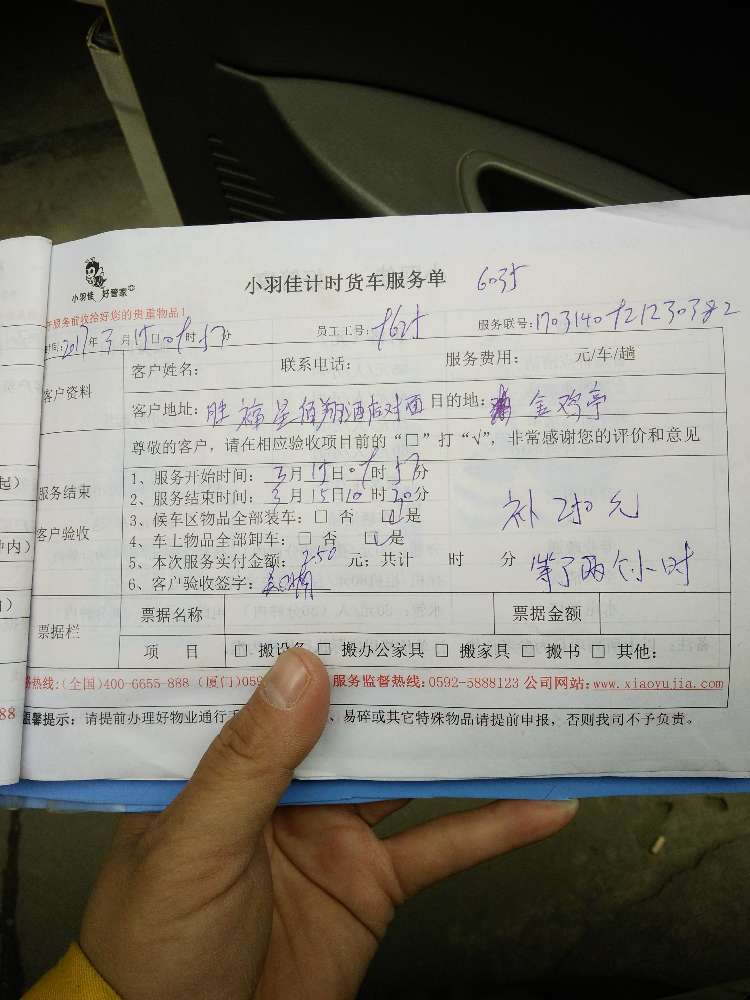 小羽佳 好管家
小羽佳计时货车服务单 6035
服务前收拾好您的贵重物品！
时间：2017年3月15日 时57分 员工工号： 服务联号：
客户资料
客户姓名： 联系电话： 服务费用： 元/车/趟
客户地址：胜福星佰翔酒店对面 目的地： 金鸡亭
尊敬的客户，请在相应验收项目前的“□”打“√”，非常感谢您的评价和意见
服务结束
客户验收
1、服务开始时间：3月15日 时57分
2、服务结束时间：3月15日10时20分
3、候车区物品全部装车：□ 否 □是
4、车上物品全部卸车：□ 否 □是
5、本次服务实付金额：250元；共计 时 分
6、客户验收签字：
补 元
等了两个小时
票据栏
票据名称 票据金额
项 目 □ 搬设备 □ 搬办公家具 □ 搬家具 □ 搬书 □ 其他：
热线:(全国)400-6655-888 (厦门)059 服务监督热线:0592-5888123 公司网站:www.xiaoyujia.com
温馨提示：请提前办理好物业通行 、易碎或其它特殊物品请提前申报，否则我司不予负责。